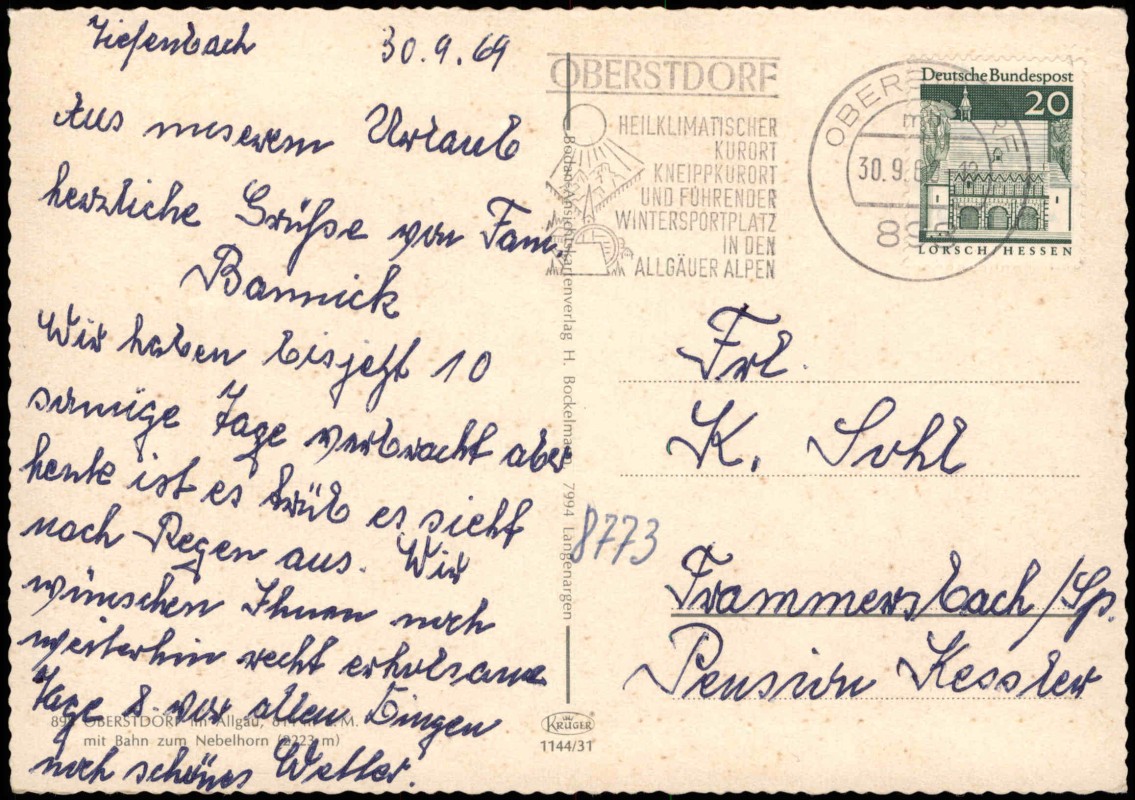 Tiefenbach 30.9.69
Aus unserem Urlaub
herzliche Grüße von Fam.
Bannick
Wir haben bisjetzt 10
sonnige Tage verbracht aber
heute ist es trüb es sieht
nach Regen aus. Wir
wünschen Ihnen noch
weiterhin recht erholsame
Tage & vor allen Dingen
noch schönes Wetter.
890 OBERSTDORF im Allgäu, M.
mit Bahn zum Nebelhorn (2223 m)
Bodan-Ansichtskartenverlag H. Bockelmann 7994 Langenargen
KRÜGER
1144/31
OBERSTDORF
HEILKLIMATISCHER
KURORT
KNEIPPKURORT
UND FÜHRENDER
WINTERSPORTPLATZ
IN DEN
ALLGÄUER ALPEN
30.9.
Deutsche Bundespost
20
LORSCH/HESSEN
Frl.
K. Sohl
8773
Frammersbach/Sp.
Pension Kessler